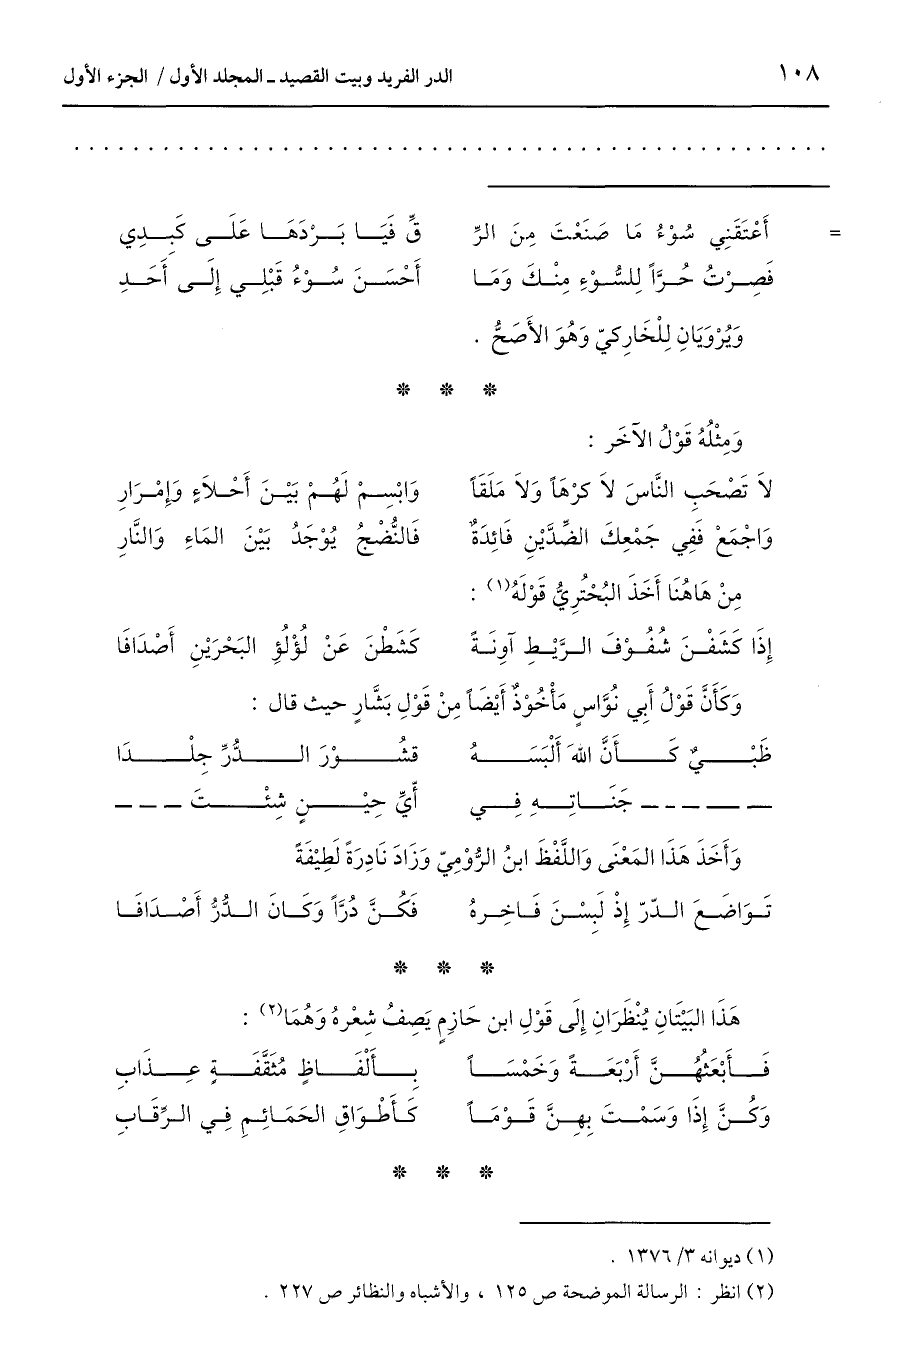 ١٠٨ الدر الفريد وبيت القصيد ـ المجلد الأول / الجزء الأول
= أَعْتَقَنِي سُوْءُ مَا صَنَعْتَ مِنَ الرِّ قِّ فَيَا بَرْدَهَا عَلَى كَبِدِي
فَصِرْتُ حُرَّاً لِلسُّوْءِ مِنْكَ وَمَا أَحْسَنَ سُوْءُ قَبْلِي إِلَى أَحَدِ
وَيُرْوَيَانِ لِلْخَارِكيّ وَهُوَ الأَصَحُّ .
* * *
وَمِثْلُهُ قَوْلُ الآخَرِ :
لاَ تَصْحَبِ النَّاسَ لاَ كرْهَاً وَلاَ مَلَقَاً وَابْسِمْ لَهُمْ بَيْنَ أَحْلاَءٍ وَإِمْرَارِ
وَاجْمَعْ فَفِي جَمْعِكَ الضِّدَّيْنِ فَائِدَةٌ فَالنُّضْجُ يُوْجَدُ بَيْنَ المَاءِ وَالنَّارِ
مِنْ هَاهُنَا أَخَذَ البُحْتُرِيُّ قَوْلَهُ(١) :
إِذَا كَشَفْنَ شُفُوْفَ الرَّيْطِ آونَةً كَشَطْنَ عَنْ لُؤْلُؤِ البَحْرَيْنِ أَصْدَافَا
وَكَأَنَّ قَوْلُ أَبِي نُوَّاسٍ مَأْخُوْذٌ أَيْضَاً مِنْ قَوْلِ بَشَّارٍ حيث قال :
ظَبْيٌ كَأَنَّ اللهَ أَلْبَسَهُ قشُوْرَ الدُّرِّ جِلْدَا
ــ ــ ــ ــ ــ جَنَاتِهِ فِي أَيِّ حِيْنٍ شِئْتَ ــ ــ ــ
وَأَخَذَ هَذَا المَعْنَى وَاللَّفْظَ ابنُ الرُّوْمِيّ وَزَادَ نَادِرَةً لَطِيْفَةً
تَوَاضَعَ الدّرّ إِذْ لَبِسْنَ فَاخِرهُ فَكُنَّ دُرَّاً وَكَانَ الدُّرُّ أَصْدَافَا
* * *
هَذَا البَيْتَانِ يُنْظَرَانِ إِلَى قَوْلِ ابن حَازِمٍ يَصِفُ شِعْرهُ وَهُمَا(٢) :
فَأَبْعَثهُنَّ أَرْبَعَةً وَخَمْسَاً بِأَلْفَاظٍ مُثَقَّفَةٍ عِذَابِ
وَكُنَّ إِذَا وَسَمْتَ بِهِنَّ قَوْمَاً كَأَطْوَاقِ الحَمَائِمِ فِي الرِّقَابِ
* * *
(١) ديوانه ٣/ ١٣٧٦ .
(٢) انظر : الرسالة الموضحة ص ١٢٥ ، والأشباه والنظائر ص ٢٢٧ .